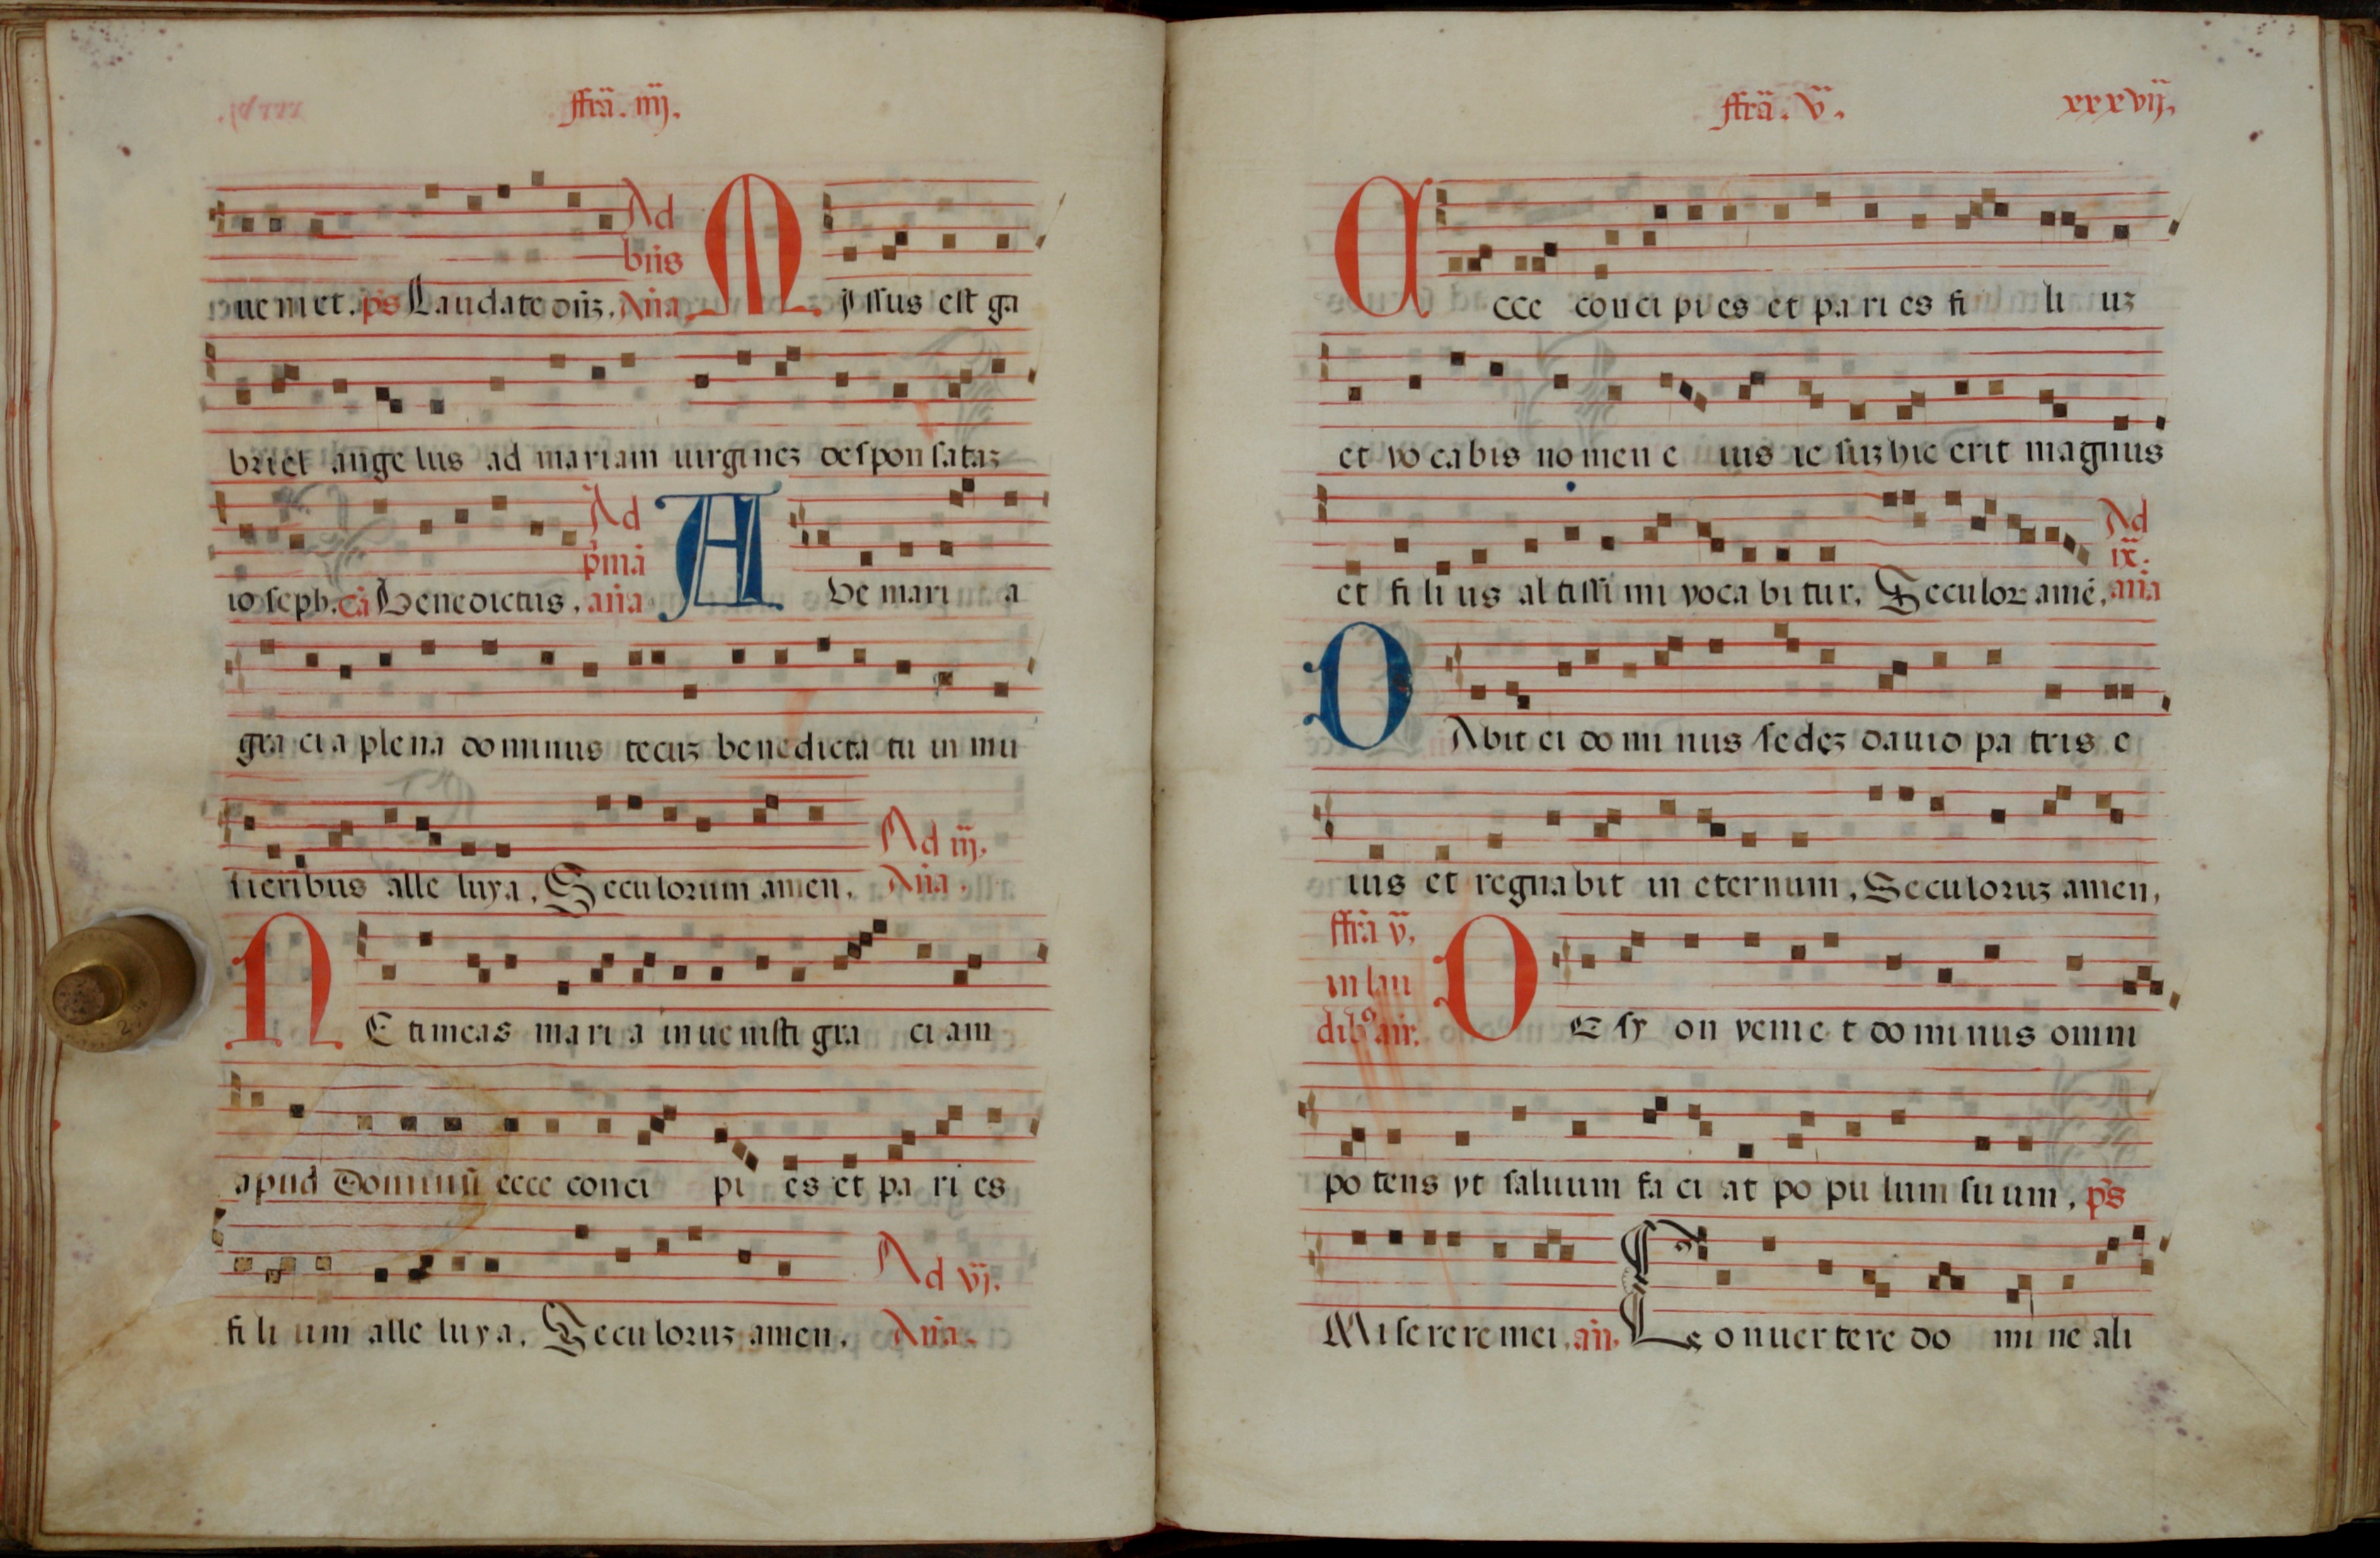 ffrã. iiij.
ueniet. ps Laudate dñz. Añа Ad bñs Missus est ga
briel angelus ad mariam uirginez desponsataz
ioseph. cã Benedictus. aña Ad pmã Ave maria
gracia plena dominus tecuz benedicta tu in mu
lieribus alleluya. Seculorum amen. Ad iij. Aña.
NE timeas maria inuenisti graciam
apud Dominũ ecce concipies et paries
filium alleluya. Seculoruz amen. Ad vj. Aña.
ffrã. v. xxxvij.
Ecce concipies et paries filiuz
et vocabis nomen eius iesuz hic erit magnus
et filius altissimi vocabitur. Seculor amẽ. Ad ix. aña
DAbit ei dominus sedez dauid patris e
ius et regnabit in eternum. Seculoruz amen.
ffrã v. in laudib9 añ. DE syon veniet dominus omni
potens vt saluum faciat populum suum. ps
Miserere mei. añ. Conuertere domine ali